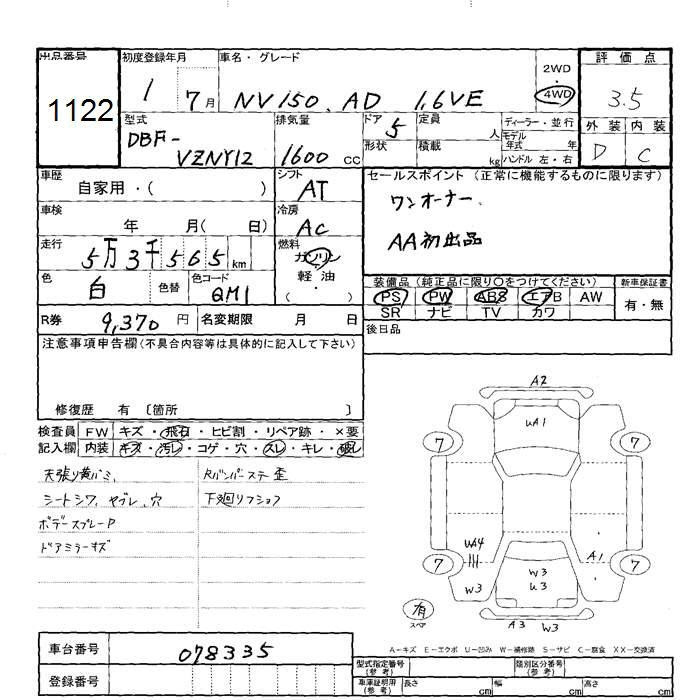 出品番号 初度登録年月 車名・グレード 評価点
1122
1 7月 NV150 AD 1.6VE
2WD・4WD
3.5
型式 排気量 ドア 定員 ディーラー・並行 外装 内装
DBF-VZNY12 1600cc 5 人 モデル年式 年
形状 積載 kg ハンドル 左・右
D C
車歴 自家用・( ) シフト AT
セールスポイント (正常に機能するものに限ります)
ワンオーナー、
AA初出品
車検 年 月( 日) 冷房 AC
走行 5万3千565km 燃料 ガソリン 軽油 ・( )
色 白 色替 色コード QM1
装備品 (純正品に限り○をつけてください) 新車保証書
PS PW ABS エアB AW 有・無
SR ナビ TV カワ
R券 9,370円 名変期限 月 日
後日品
注意事項申告欄(不具合内容等は具体的に記入して下さい)
修復歴 有 〔箇所 〕
検査員 FW キズ・飛石・ヒビ割・リペア跡・×要
記入欄 内装 キズ・汚レ・コゲ・穴・スレ・キレ・破レ
天張り黄バミ、 Rバンパーステー歪
シートシワ、ヤブレ、穴 下廻りフション
ボデースプレーP
ドアミラーキズ
A2
UA1
7 7
UA4 A1
7 W3 7
W3 U3
有
スペア
A3 W3
A-キズ E-エクボ U-凹み W-補修跡 S-サビ C-腐食 XX-交換済
車台番号 078335
型式指定番号(参考) 類別区分番号(参考)
登録番号
車庫証明用(参考) 長さ cm 幅 cm 高さ cm